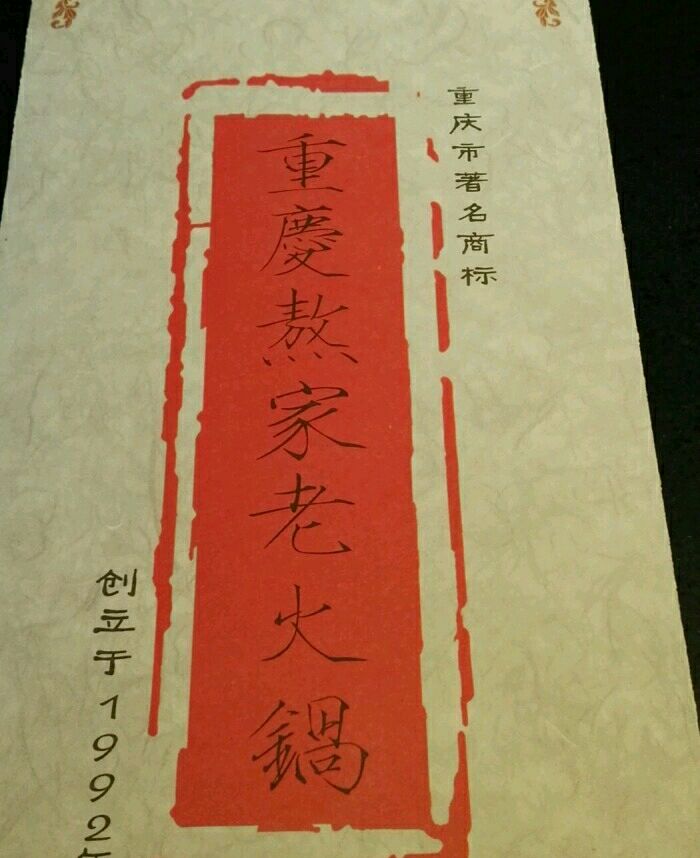 重庆市著名商标
重慶熬家老火鍋
创立于1992年